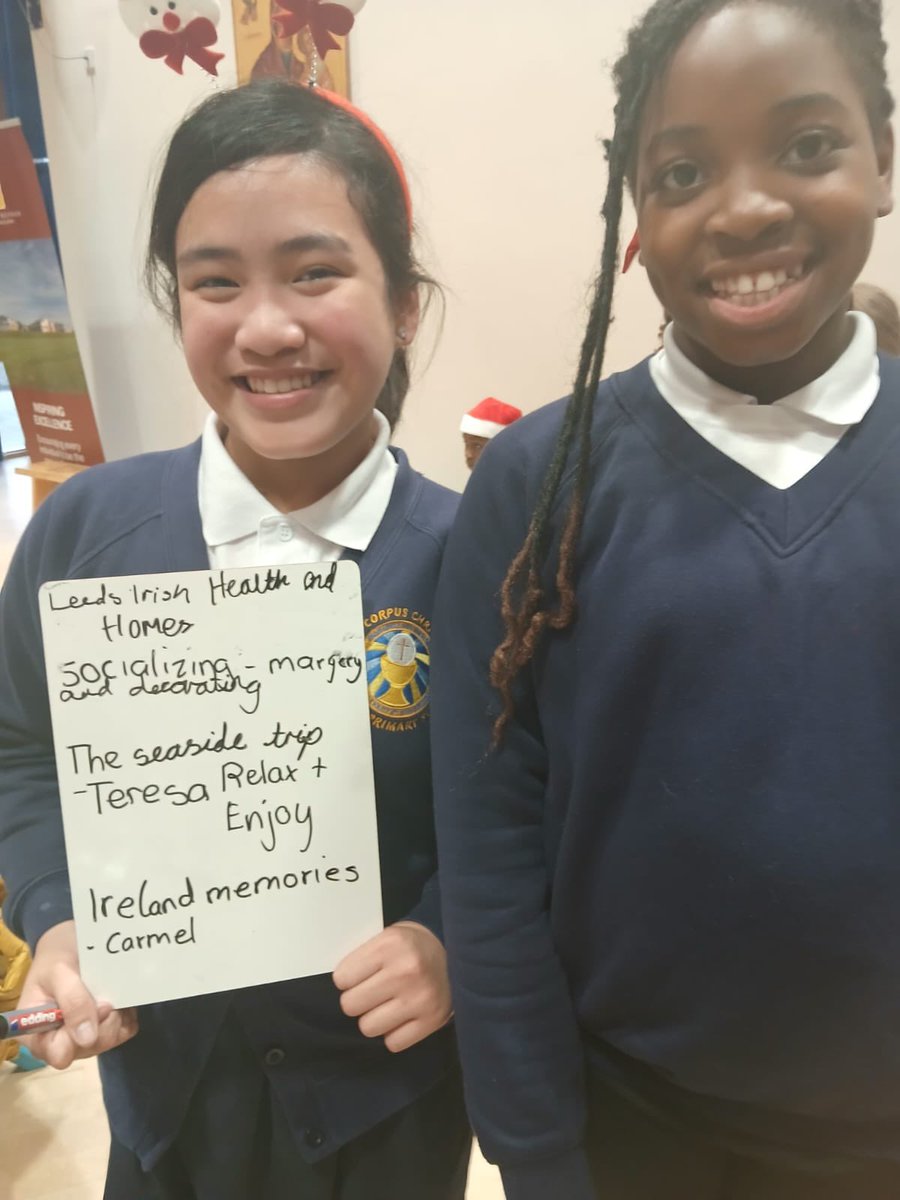 Leeds Irish Health and
Homes
Socializing - margery
and decorating
The seaside trip
-Teresa Relax +
Enjoy
Ireland memories
- Carmel
CORPUS CHR
PRIMARY
edding
INSPIRING
EXCELLENCE